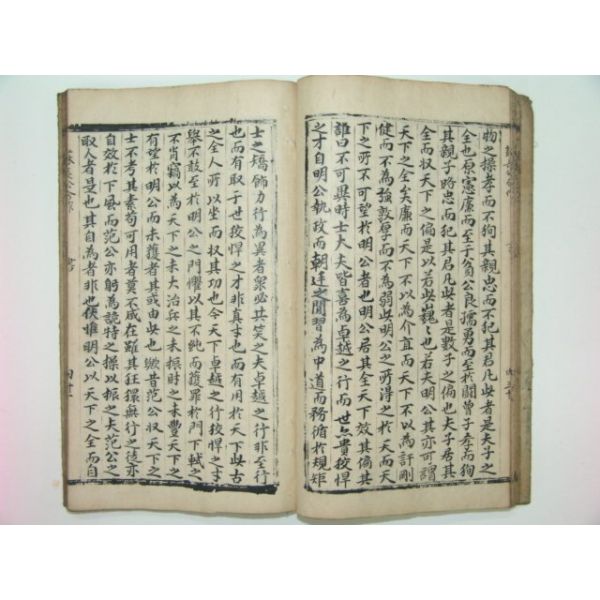 物之操孝而不狥其親忠而不犯其君凡此者是夫子之
全也原憲廉而至于貧公良孺勇而至於鬪曾子孝而狥
其親子路忠而犯其君凡此者是數子之偏也夫子居其
全而収天下之偏是以若此巍〻也若夫明公其亦可謂
天下之全矣廉而天下不以為介直而天下不以為訐剛
健而不為強敦厚而不為弱此明公之所得之於天而天
下之所不可望於明公者也明公居其全天下效其偏其
誰曰不可異時士大夫皆喜為卓越之行而世亦貴狡悍
之才自明公執政而朝廷之間習為中道而務循於規矩
士之矯飾力行為異者衆必共笑之夫卓越之行非至行
也而有取于世狡悍之才非真才也而有用於天下此古
之全人所以坐而収其功也今天下卓越之行狡悍之才
舉不敢至於明公之門懼以其不純而獲罪於門下軾之
不肖竊以為天下之未大治兵之未振財之未豐天下之
有望於明公而未獲者其或由此也歟昔范公収天下之
士不考其素苟可用者莫不咸在雖其狂獧無行之徒亦
自效於下風而范公亦躬為詭特之操以振之夫范公之
取人者是也其自為者非也伏惟明公以天下之全而自